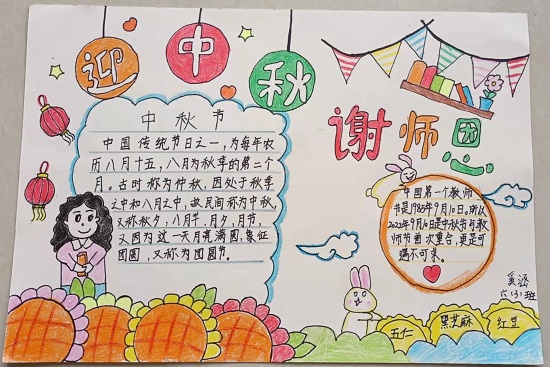 迎中秋
谢师恩
中秋节
中国传统节日之一,为每年农
历八月十五,八月为秋季的第二个
月。古时称为仲秋,因处于秋季
之中和八月之中,故民间称为中秋,
又称秋夕,八月半,月夕,月节,
又因为这一天月亮满圆,象征
团圆,又称为团圆节。
中国第一个教师
节是1985年9月10日,所以
2022年9月10是中秋节与教
师节首次重合,更是可
遇不可求。
奚涵
六(3)班
五仁
黑芝麻
红豆